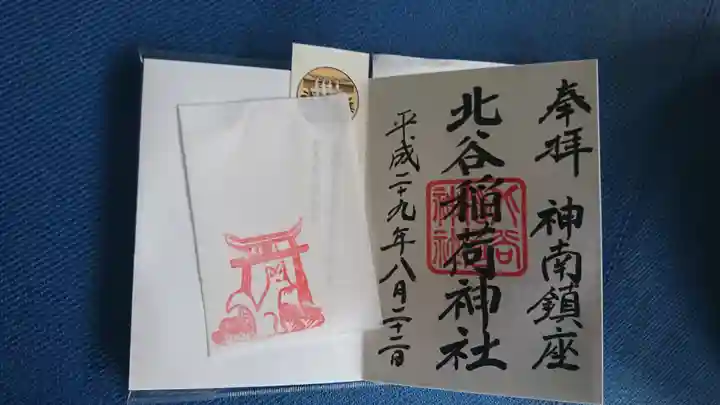 奉拝 神南鎮座
北谷稲荷神社
平成二十九年八月二十二日